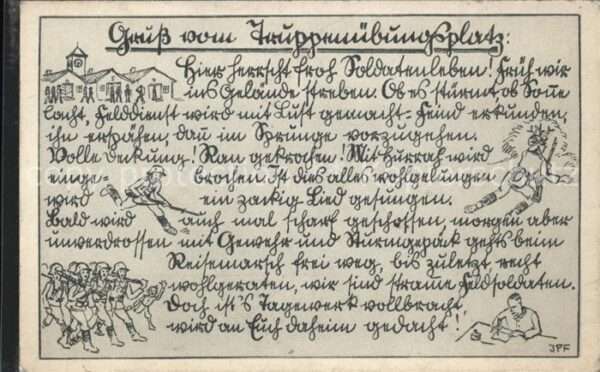 Gruß vom Truppenübungsplatz:
Hier herrscht froh Soldatenleben! Früh wir
ins Gelände streben. Ob es stürmt, ob Sonne
lacht, Felddienst wird mit Lust gemacht - Feind erkunden,
ihn erspähen, dann im Sprunge vorzugehen.
Volle Deckung! Ran gekrochen! Mit Hurrah wird
einge- brochen. Ist dies alles wohlgelungen
wird ein zackig Lied gesungen.
Bald wird auch mal scharf geschossen, morgen aber
unverdrossen mit Gewehr und Sturmgepäck gehts beim
Reisemarsch frei weg, bis zuletzt recht
wohlgeraten, wir sind stramme Feldsoldaten.
Doch ist's Tagewerk vollbracht,
wird an Euch daheim gedacht!
JPF